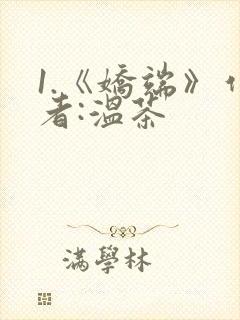 1.《嬌端》
者:溫茶
滿學林